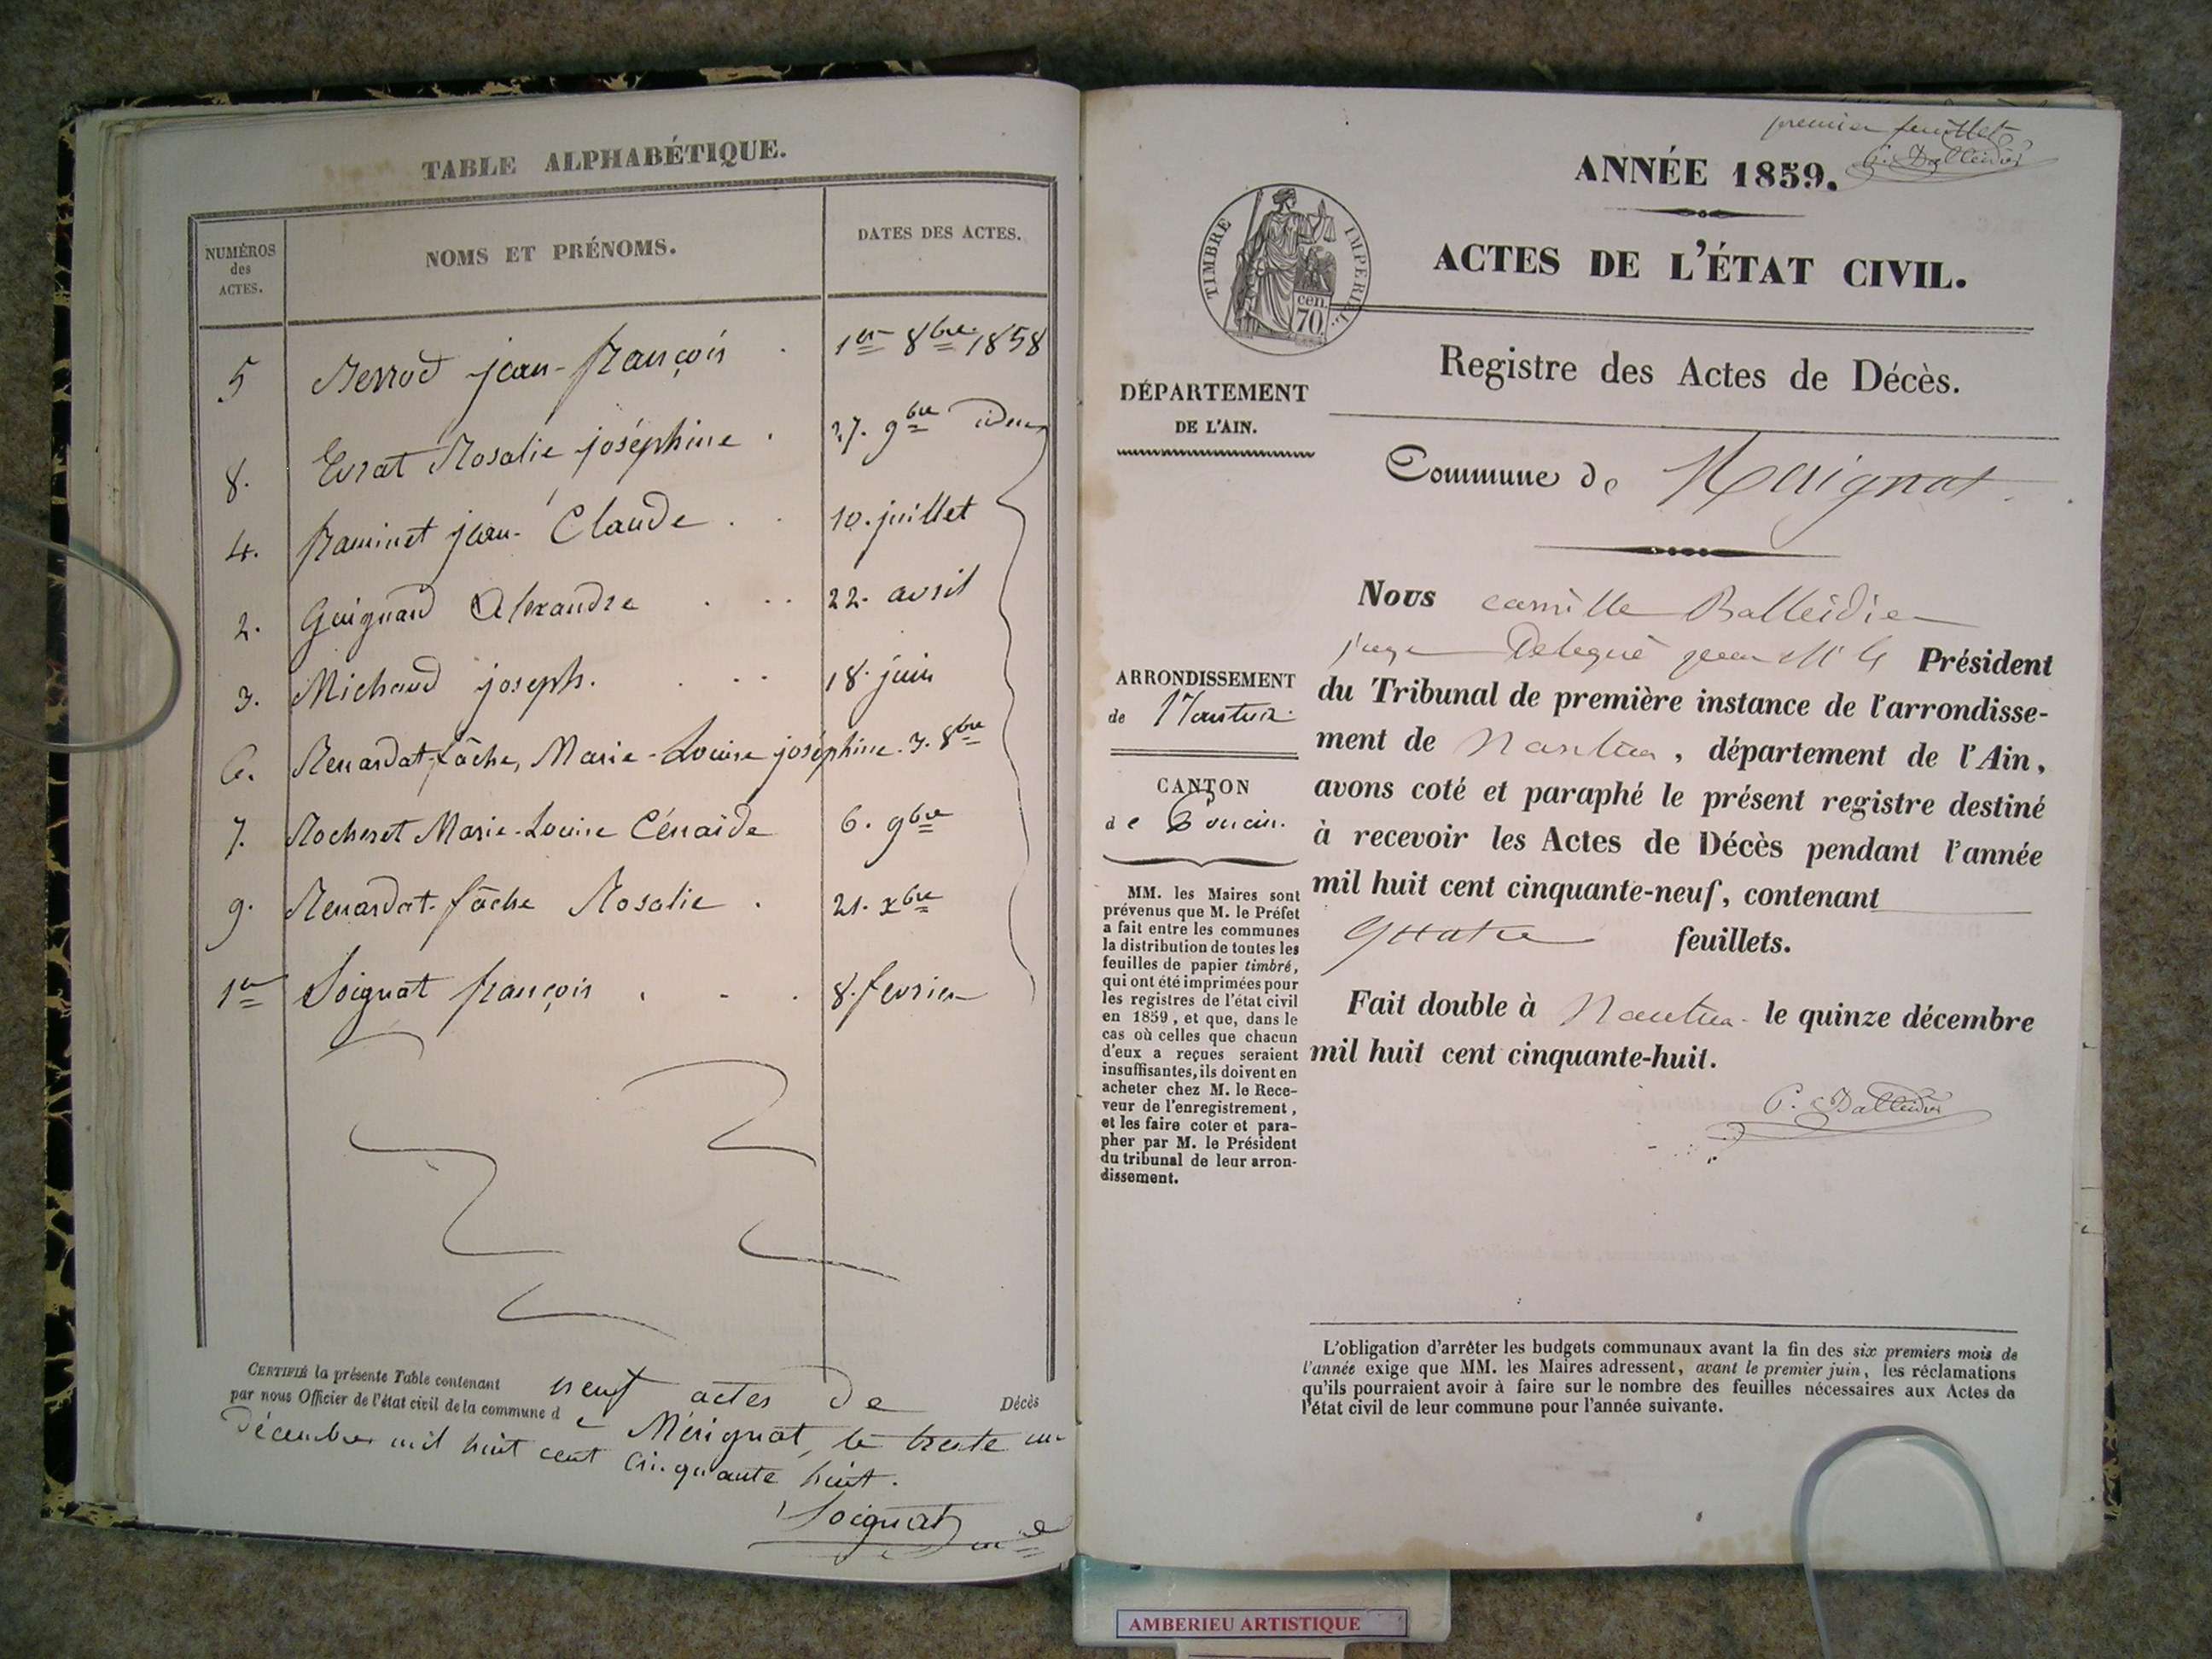 TABLE ALPHABÉTIQUE.
NUMÉROS des ACTES. NOMS ET PRÉNOMS. DATES DES ACTES.
5 jean-françois 1er 8bre 1858
8. Evrat Rosalie joséphine 27. 9bre idem
4. framinet jean-Claude 10. juillet
2. Guignard Alexandre 22. avril
3. Michaud joseph. 18. juin
6. Renardat-fâche, Marie-Louise joséphine. 3. 8bre
7. Rocheret Marie-Louise Cénaïde 6. 9bre
9. Renardat-fâche Rosalie 21. xbre
1er Soignat françois 8. fevrier
CERTIFIÉ la présente Table contenant neuf actes de Décès
par nous Officier de l'état civil de la commune de Mérignat, le trente un
Décembre mil huit cent cinquante huit.
Soignat
premier feuillet
C. Balleidier
ANNÉE 1859.
TIMBRE IMPERIAL.
cen.
70.
ACTES DE L'ÉTAT CIVIL.
Registre des Actes de Décès.
DÉPARTEMENT
DE L'AIN.
Commune de Mérignat.
ARRONDISSEMENT
de Nantua.
CANTON
de Poncin.
MM. les Maires sont
prévenus que M. le Préfet
a fait entre les communes
la distribution de toutes les
feuilles de papier timbré,
qui ont été imprimées pour
les registres de l'état civil
en 1859, et que, dans le
cas où celles que chacun
d'eux a reçues seraient
insuffisantes, ils doivent en
acheter chez M. le Rece-
veur de l'enregistrement,
et les faire coter et para-
pher par M. le Président
du tribunal de leur arron-
dissement.
Nous camille Balleidier
juge Delegué pour M le Président
du Tribunal de première instance de l'arrondisse-
ment de Nantua, département de l'Ain,
avons coté et paraphé le présent registre destiné
à recevoir les Actes de Décès pendant l'année
mil huit cent cinquante-neuf, contenant
quatre feuillets.
Fait double à Nantua le quinze décembre
mil huit cent cinquante-huit.
C. Balleidier
L'obligation d'arrêter les budgets communaux avant la fin des six premiers mois de
l'année exige que MM. les Maires adressent, avant le premier juin, les réclamations
qu'ils pourraient avoir à faire sur le nombre des feuilles nécessaires aux Actes de
l'état civil de leur commune pour l'année suivante.
AMBERIEU ARTISTIQUE